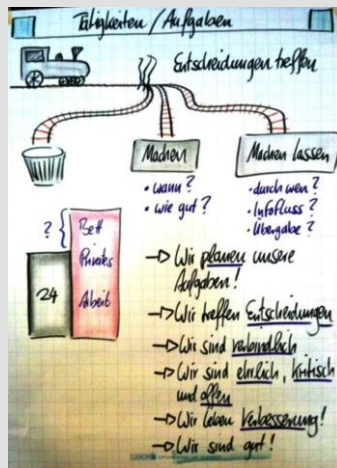 Tätigkeiten / Aufgaben
Entscheidungen treffen
Machen
• wann?
• wie gut?
Machen lassen
• durch wen?
• Infofluss?
• Übergabe?
?
24
Bett
Privates
Arbeit
→ Wir planen unsere
Aufgaben!
→ Wir treffen Entscheidungen
→ Wir sind verbindlich
→ Wir sind ehrlich, kritisch
und offen
→ Wir leben Verbesserung!
→ Wir sind gut!